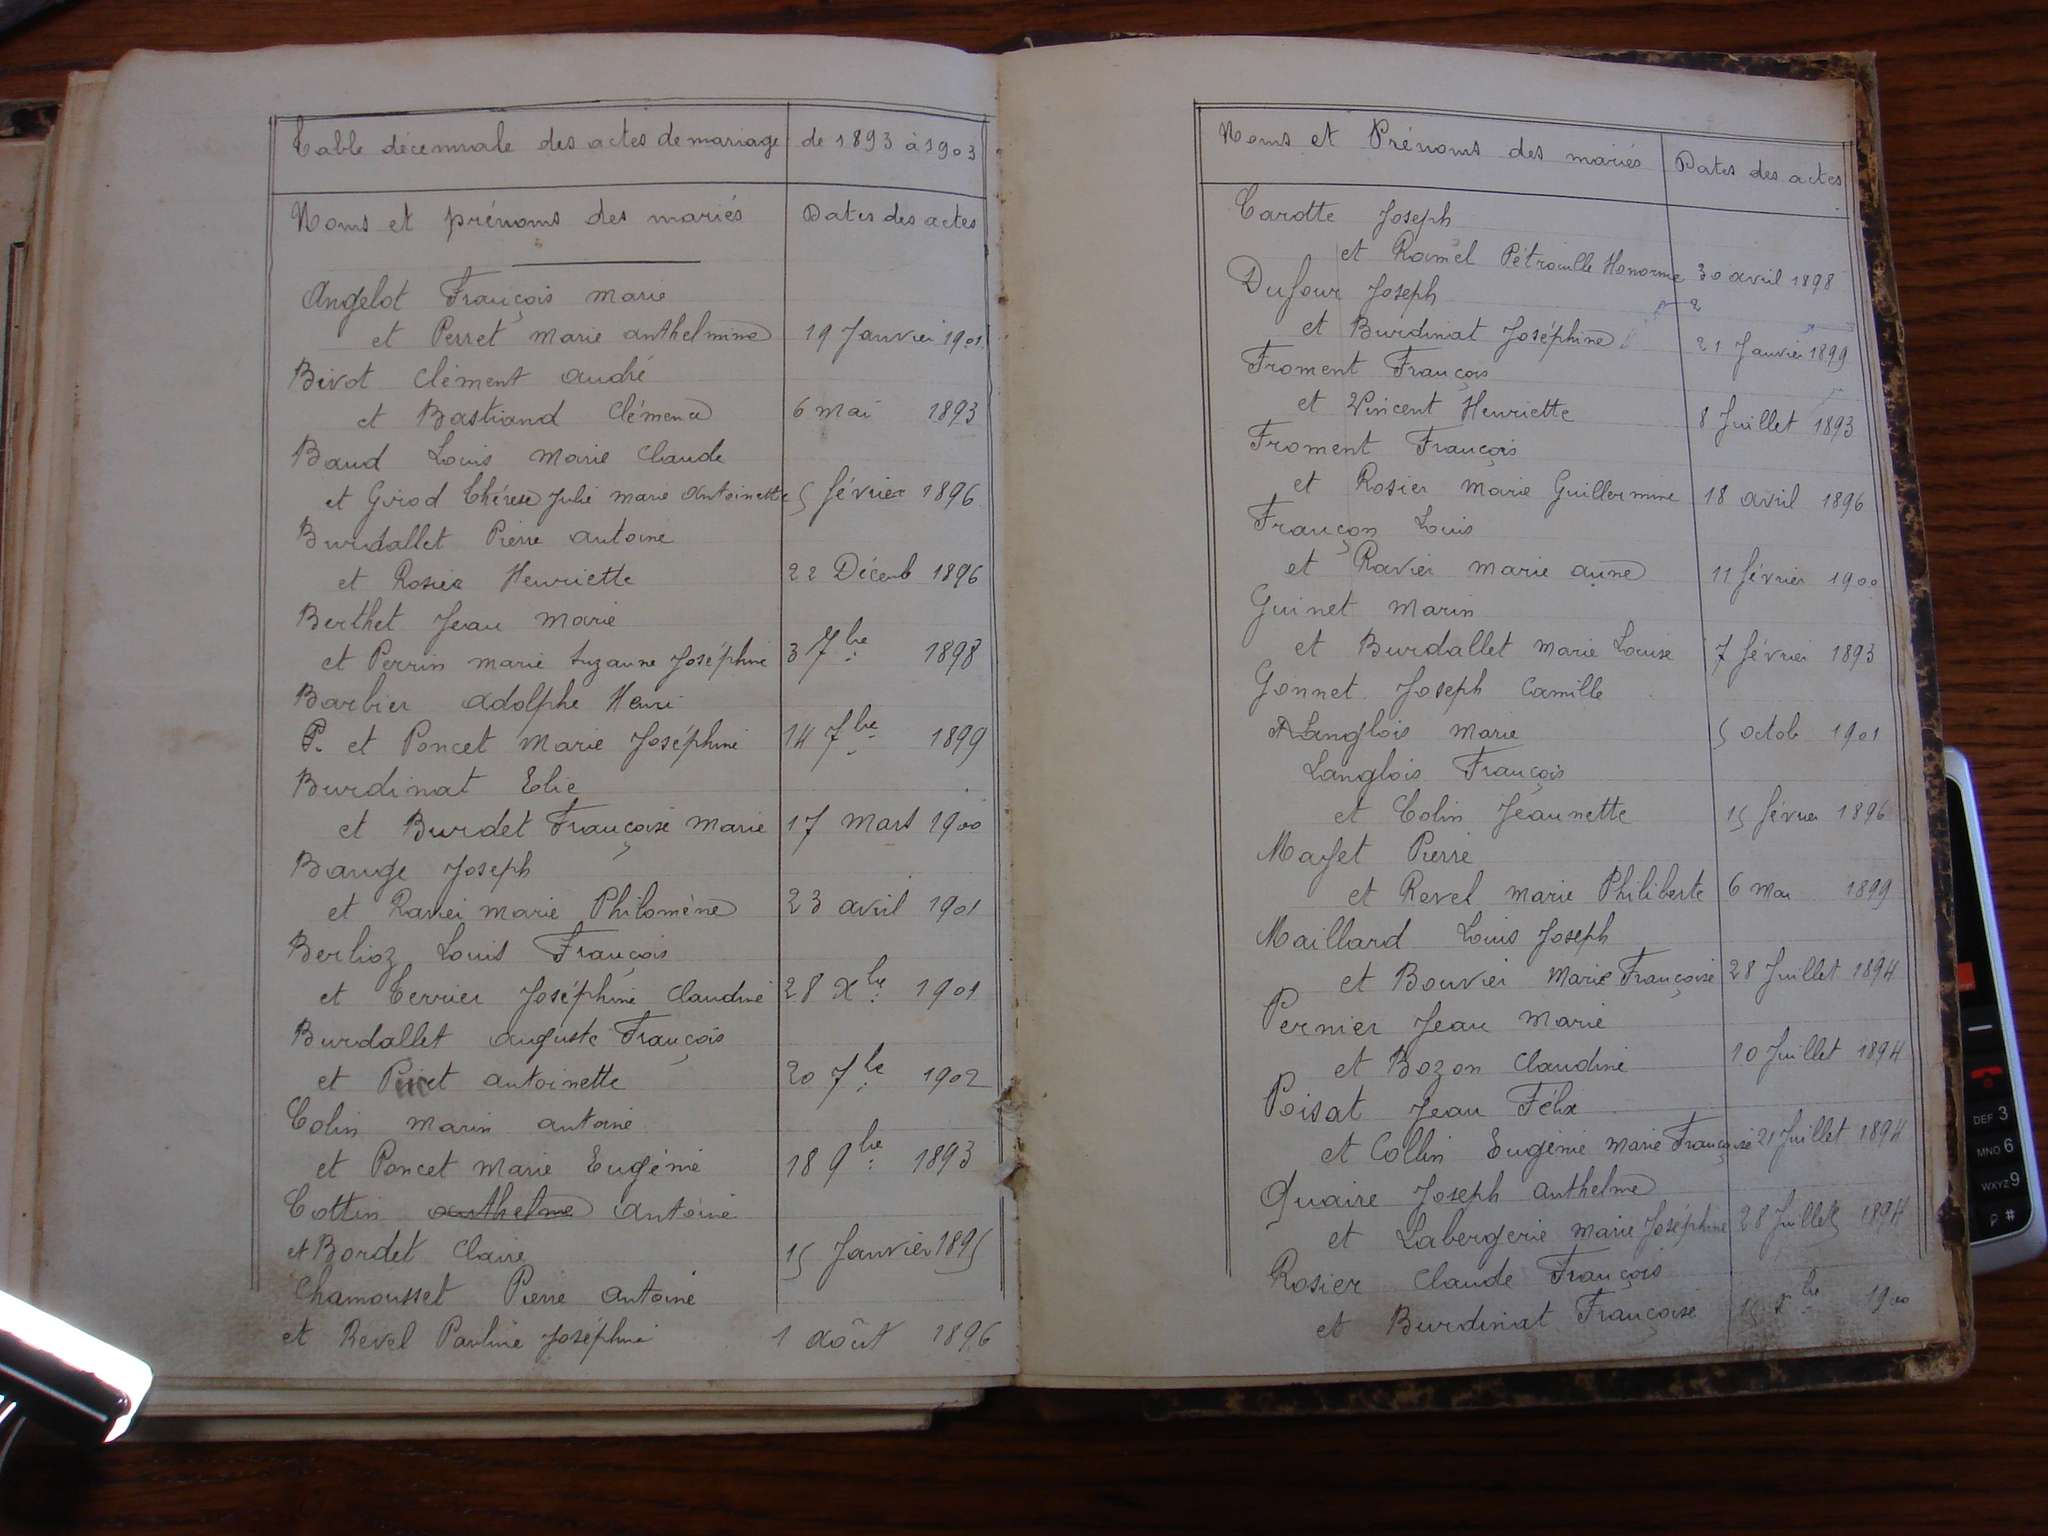 Table décennale des actes de mariage de 1893 à 1903
Noms et prénoms des mariés Dates des actes
Angelot François marie
et Perret Marie anthelmine 19 Janvier 1901
Bivot Clément André
et Bastiand Clémence 6 mai 1893
Baud Louis Marie Claude
et Girod Thérèse Julie marie Antoinette 5 février 1896
Burdallet Pierre antoine
et Rosier Henriette 22 Décemb 1896
Berthet Jean Marie
et Perrin marie Suzanne Joséphine 3 7bre 1898
Barbier Adolphe Henri
P. et Poncet Marie Joséphine 14 7bre 1899
Burdinat Elie
et Burdet Françoise Marie 17 Mars 1900
Bauge Joseph
et Ravier marie Philomène 23 avril 1901
Berlioz Louis François
et Terrier Joséphine Claudine 28 Xbre 1901
Burdallet Auguste François
et antoinette 20 7bre 1902
Colin Marin antoine
et Poncet Marie Eugénie 18 9bre 1893
Cottin anthelme Antoine
et Bordet Claire 15 Janvier 1895
Chamousset Pierre antoine
et Revel Pauline Joséphine 1 août 1896
Noms et Prénoms des mariés Dates des actes
Carotte Joseph
et Ramel Pétronille Honorine 30 avril 1898
Dufour Joseph
et Burdinat Joséphine 21 Janvier 1899
Froment François
et Vincent Henriette 8 Juillet 1893
Froment François
et Rosier Marie Guillermine 18 avril 1896
Françon Louis
et Ravier marie anne 11 février 1900
Guinet Marin
et Burdallet Marie Louise 7 février 1893
Gonnet Joseph Camille
Langlois Marie 5 octob 1901
Langlois François
et Colin Jeannette 15 février 1896
Mayet Pierre
et Revel marie Philiberte 6 mai 1899
Maillard Louis Joseph
et Bouvier Marie Françoise 28 Juillet 1894
Pernier Jean Marie
et Bozon Claudine 10 Juillet 1894
Poisat Jean Félix
et Collin Eugénie Marie Françoise 21 Juillet 1894
Quaire Joseph Anthelme
et Labergerie Marie Joséphine 28 Juillet 1894
Rosier Claude François
et Burdinat Françoise 1900
DEF 3
MNO 6
WXYZ 9
#